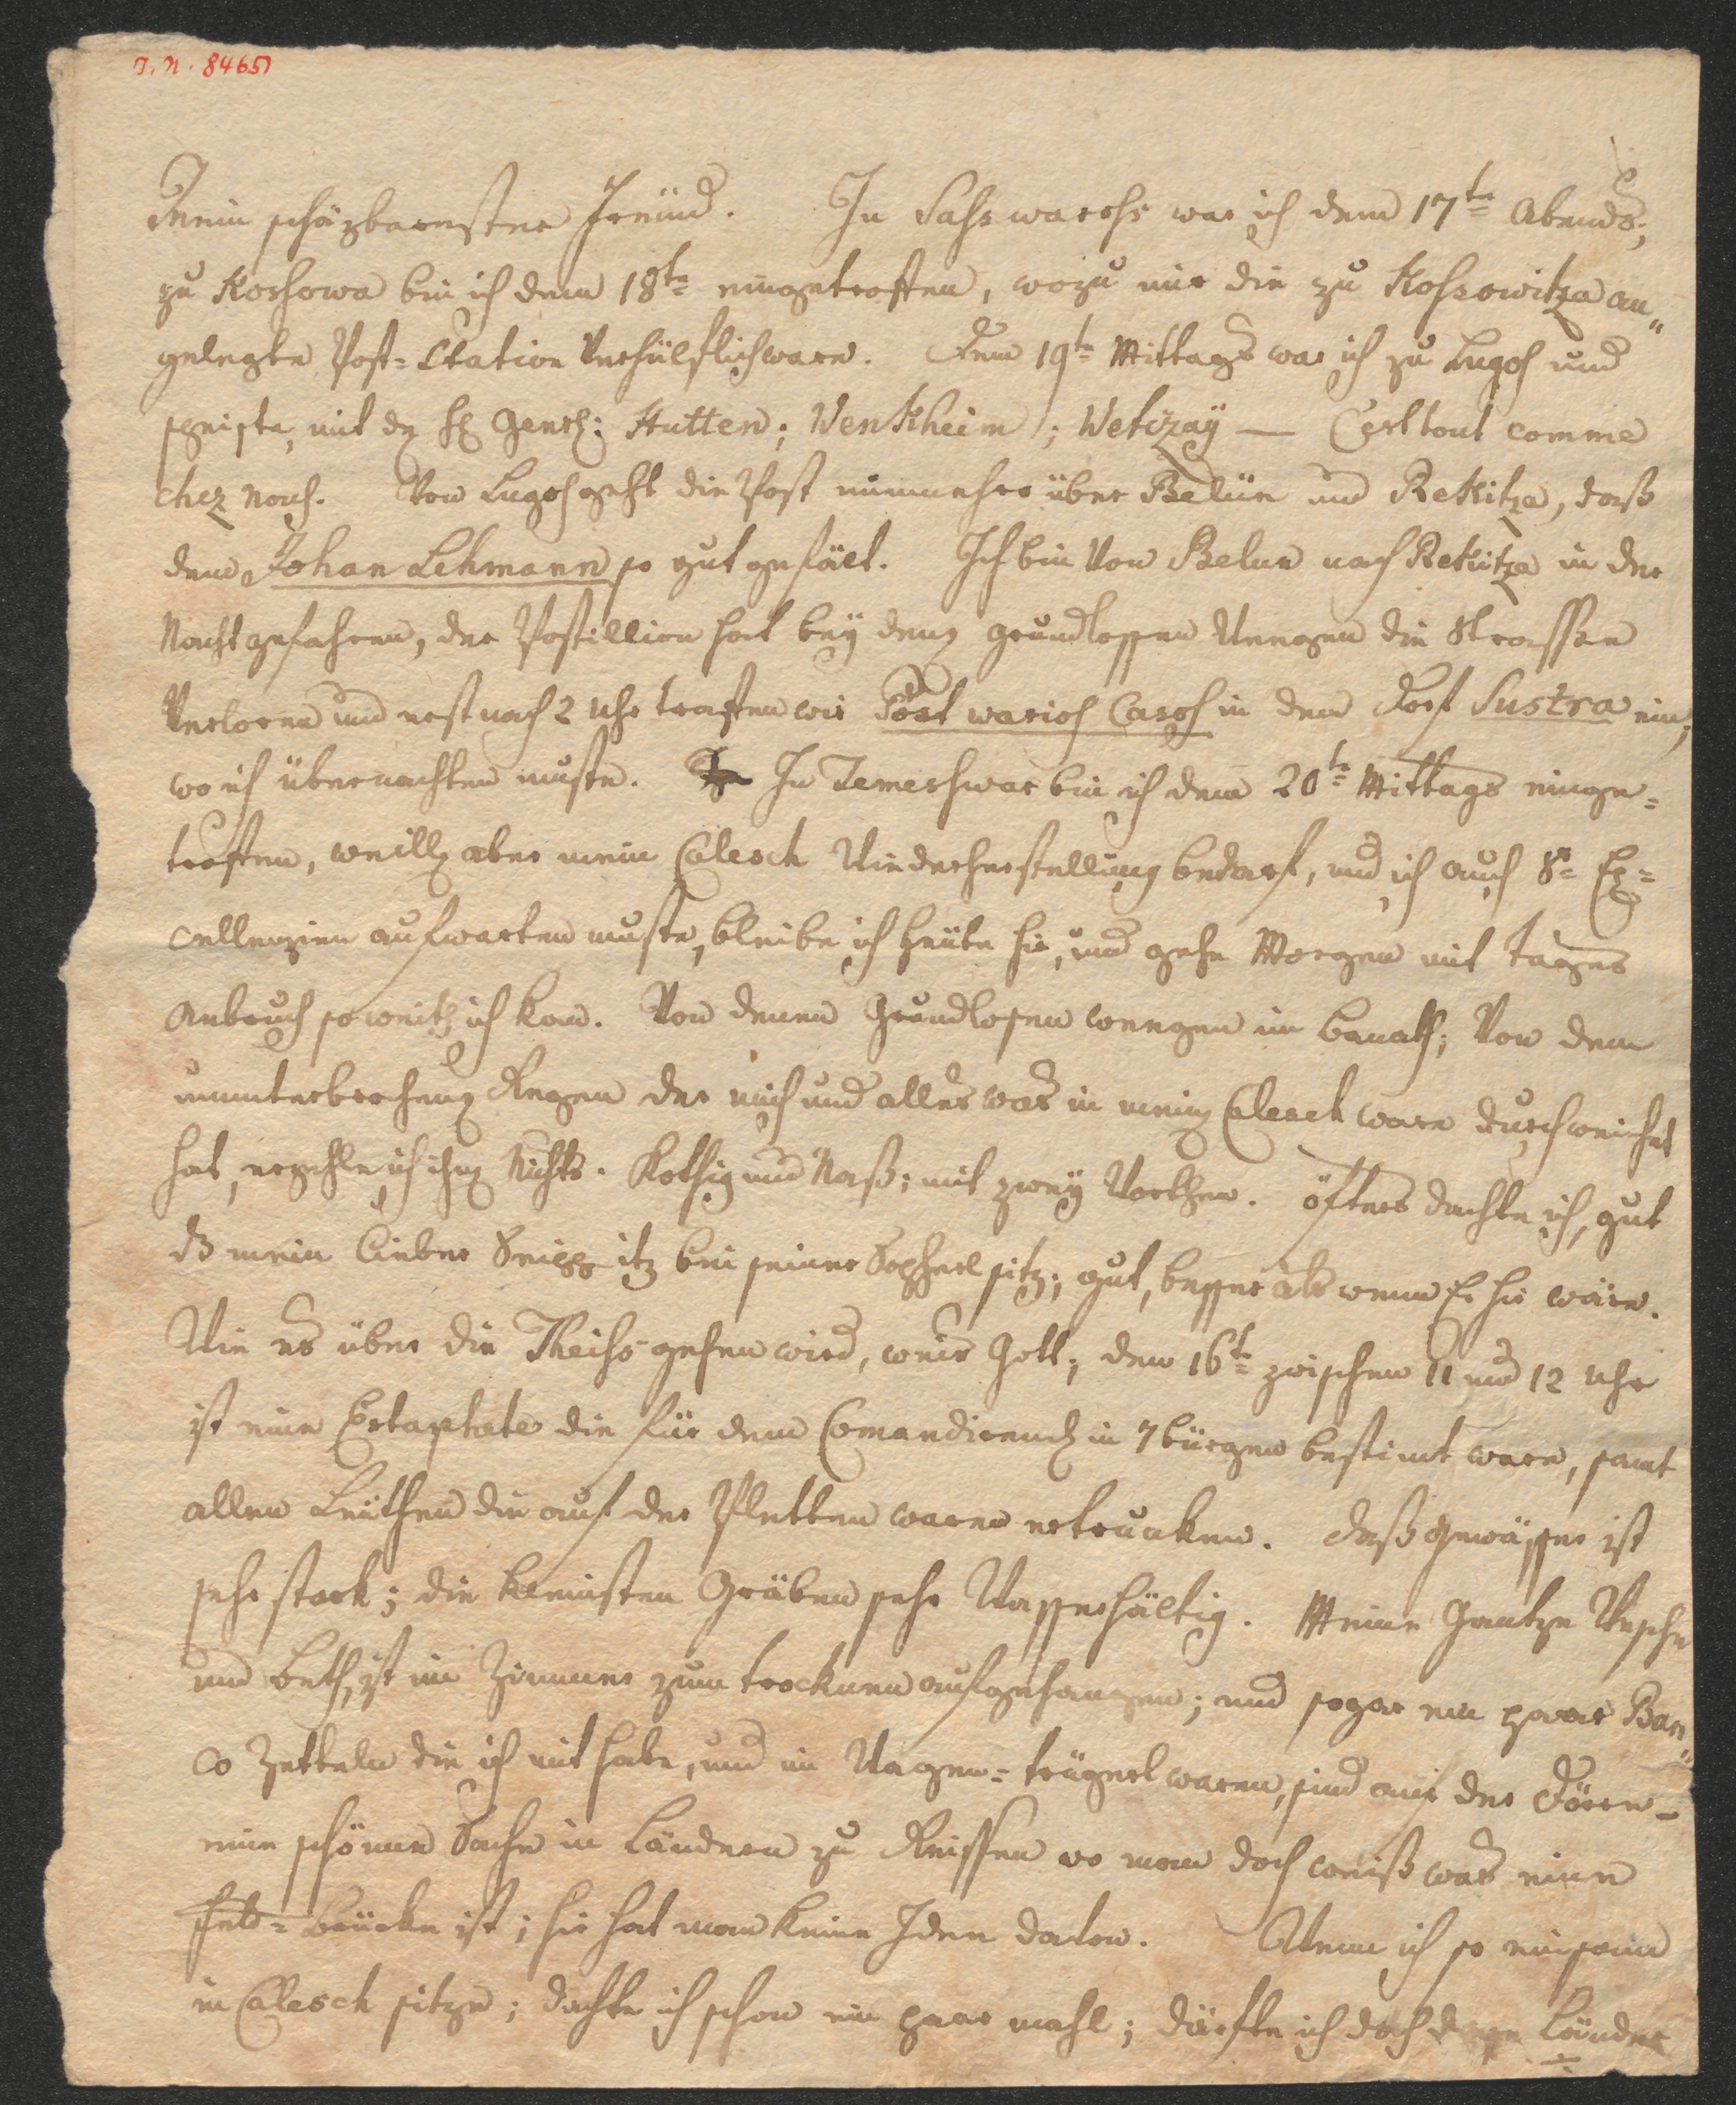 I. N. 84651
Mein schäzbarester Freünd. In Sahswarosh war ich dem 17te Abends;
zu Koshowa bin ich dem 18te eingetroffen, wozu mir die zu Kossowitza an„
gelegte Post=Station Verhülflich ware. Dem 19te Mittags war ich zu Lugos und
speiste, mit dn H Genrl: Hutten; Wenkheim; Wetczaÿ — C'est tout comme
chez nous. Von Lugos geht die Post nunmehro über Belün und Rekitza, daß
dem Johan Lehmann so gut gefält. Ich bin Von Belun nach Rekitza in der
Nacht gefahren, der Postillion hat beÿ denen grundlossen Weegen die Strassen
Verloren und erst nach 2 Uhr traffen wir Post warios Casos in dem Dorf Sustra ein;
wo ich übernachten muste. In Temeshwar bin ich dem 20te Mittags einge=
troffen, weill aber mein Calesch Wiederherstellung bedarf, und ich auch Sr Ex=
cellenzien aufwarten muste, bleibe ich heüte hie, und gehe Morgen mit Tages
Anbruch so weith ich kan. Von denen Grundlosen weegen im banath; Von dem
ununterbrochenen Regen der mich und alles was in meinen Calesch ware durchweichet
hat, erzehle ich ihnen Nichts. Kothig und Naß; mit zweÿ Worthen. öfters dachte ich, gut
dß mein lieber itz bei seiner Sepherl sitz; gut, besser als wenn Er hie wäre.
Wie es über die Theiss gehen wird, weis Gott; dem 16te zwischen 11 und 12 Uhr
ist eine Estaphete die für dem Comandirenden in 7bürgen bestimt ware, samt
allen Leüthen die auf der Pletten waren ertrunken. daß Gewässer ist
sehr stark; die kleinsten Gräben sehr Wasserhältig. Meine Gantze Wesche
und beth, ist im Zimmer zum trocknen aufgehangen; und sogar ein paar Ban„
co Zetteln die ich mit habe, und im Wagen=trügerl waren, sind auf der Dörre_
eine schönne Sache in Ländern zu Reissen wo man doch weiß was eine
Feld=brücke ist; hie hat man keine Ideen davon. Wenn ich so einsam
in Calesch sitze; dachte ich schon ein paar mahl; därfte ich doch Länder